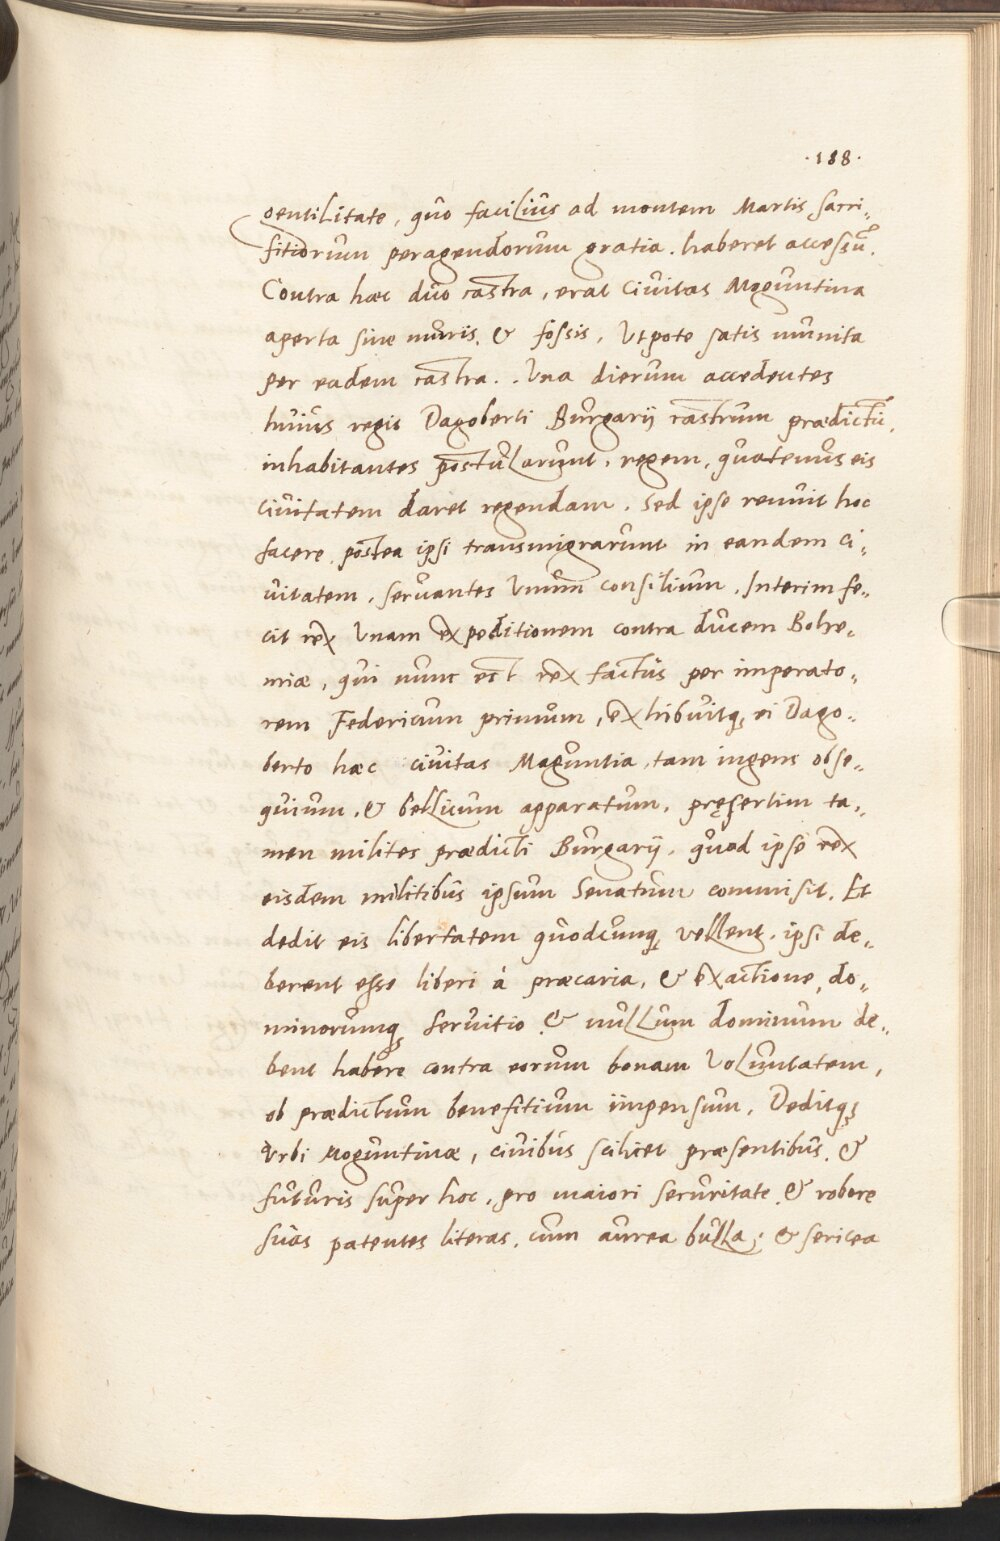 ·188·
gentilitate, quo facilius ad montem Martis sacri„
fitiorum peragendorum gratia. haberet accessũ.
Contra hæc duo castra, erat Ciuitas Moguntina
aperta sine muris. & fossis, Utpote satis munita
per eadem castra.. Una dierum accedentes
huius regis Dagoberti Burgarij castrum prædictũ,
inhabitantes postularunt. regem, quatenus eis
ciuitatem daret regendam. Sed ipse renuit hoc
facere. postea ipsi transmigrarunt in eandem ci„
uitatem. seruantes Unum consilium. Interim fe„
cit rex Unam expeditionem contra ducem Bohe„
miæ, qui nunc est rex factus per imperato„
rem Federicum primum, exhibuitq; ei Dago„
berto hæc ciuitas Maguntia, tam ingens obse„
quium. & bellicum apparatum, pręsertim ta„
men milites prædicti Burgarij. quod ipse rex
eisdem militibus ipsum Senatum commisit. Et
dedit eis libertatem quodcunq; vellent. ipsi de„
berent esse liberi á præcaria, & exactione, do„
minorumq; seruitio & nullum dominum de„
bent habere contra eorum bonam Voluntatem,
ob prædictum benefitium iimpensum, Deditq;
Urbi Moguntinæ, ciuibus scilicet præsentibus. &
futuris super hoc, pro maiori securitate & robore
suas patentes literas. cum aurea bulla; & sericea